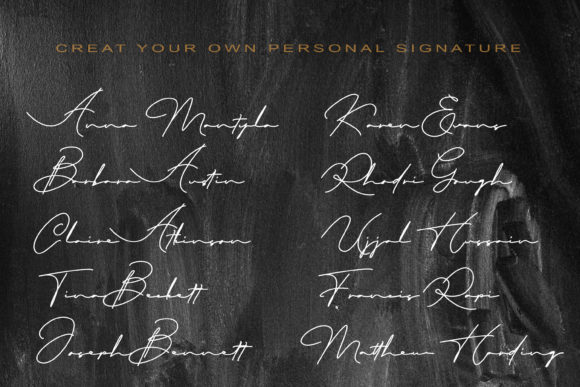 CREAT YOUR OWN PERSONAL SIGNATURE
Anna Mantyla
Karen Evans
Barbara Austin
Rhodri Gough
Claire Atkinson
Ujjal Hussain
Tina Beckett
Francis Rapi
Joseph Bennett
Matthew Harding